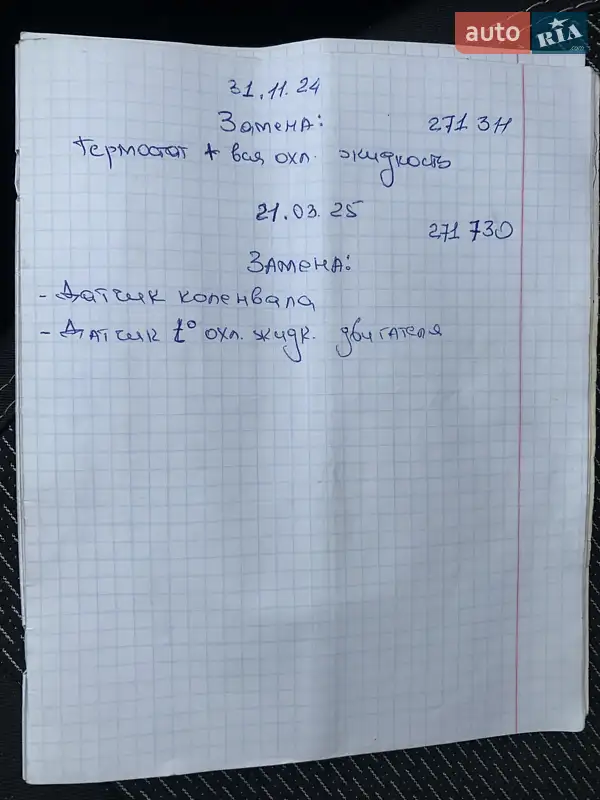 auto RIA .com
31.11.24
Замена: 271 311
Термостат + вся охл. жидкость
21.03.25
271 730
Замена:
- Датчик коленвала
- Датчик t° охл. жидк. двигателя